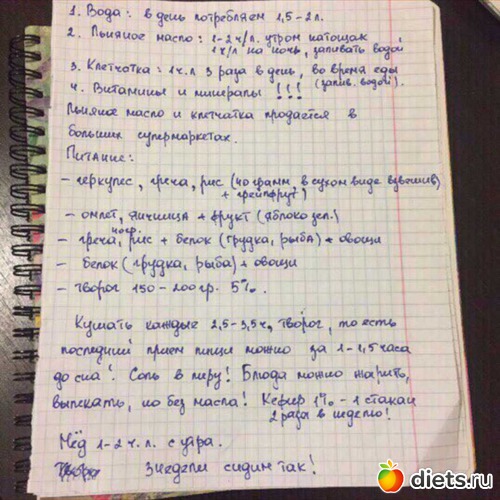 1. Вода: в день потребляем 1,5-2л.
2. Льняное масло: 1-2 ч/л. утром натощак
1ч/л на ночь, запивать водой
3. Клетчатка: 1ч.л 3 раза в день, во время еды
(запив. водой).
4. Витамины и минералы !!!
Льняное масло и клетчатка продаётся в
больших супермаркетах.
Питание:
- геркулес, греча, рис (40 грамм в сухом виде взвешив)
+ грейпфрут
- омлет, яичница + фрукт (яблоко зел.)
- греча, рис + белок (грудка, рыба) + овощи
- белок (грудка, рыба) + овощи
- творог 150-200гр. 5%.
Кушать каждые 2,5-3,5ч, творог, то есть
последний прием пищи можно за 1-1,5 часа
до сна! Соль в меру! Блюда можно жарить,
выпекать, но без масла! Кефир 1% - 1 стакан
2 раза в неделю!
Мёд 1-2 ч.л. с утра.
3 недели сидим так!
diets.ru